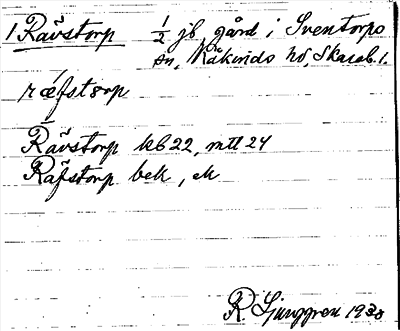 1 Rävstorp ½ jb gård i Sventorps
sn, Kåkinds hd, Skarab. l.
ræfstorp
Rävstorp kb 22, mtl 24
Räfstorp bek, ek
R. Ljunggren 1930